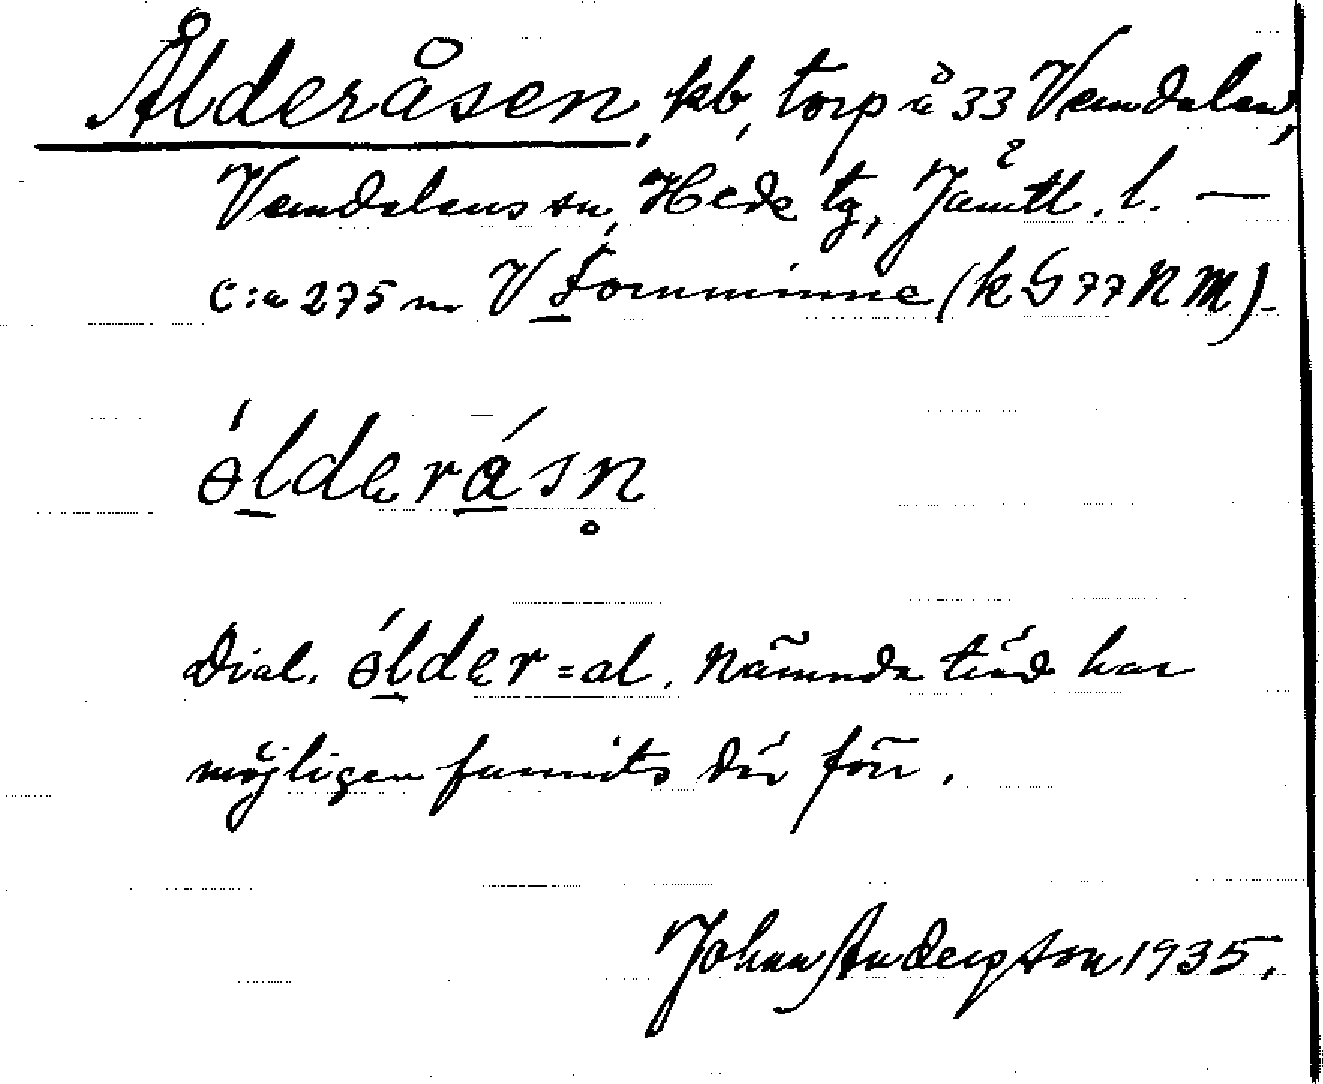 Ålderåsen, kb, torp å 33 Vemdalen,
Vemdalens sn, Hede tg, Jämtl. l. —
c:a 275 m V Fornminne (k G 77 N M)
ɵ́lderásn̥
Dial. ɵ́lder = al. Nämnda träd har
möjligen funnits där förr.
Johan Andersson 1935.